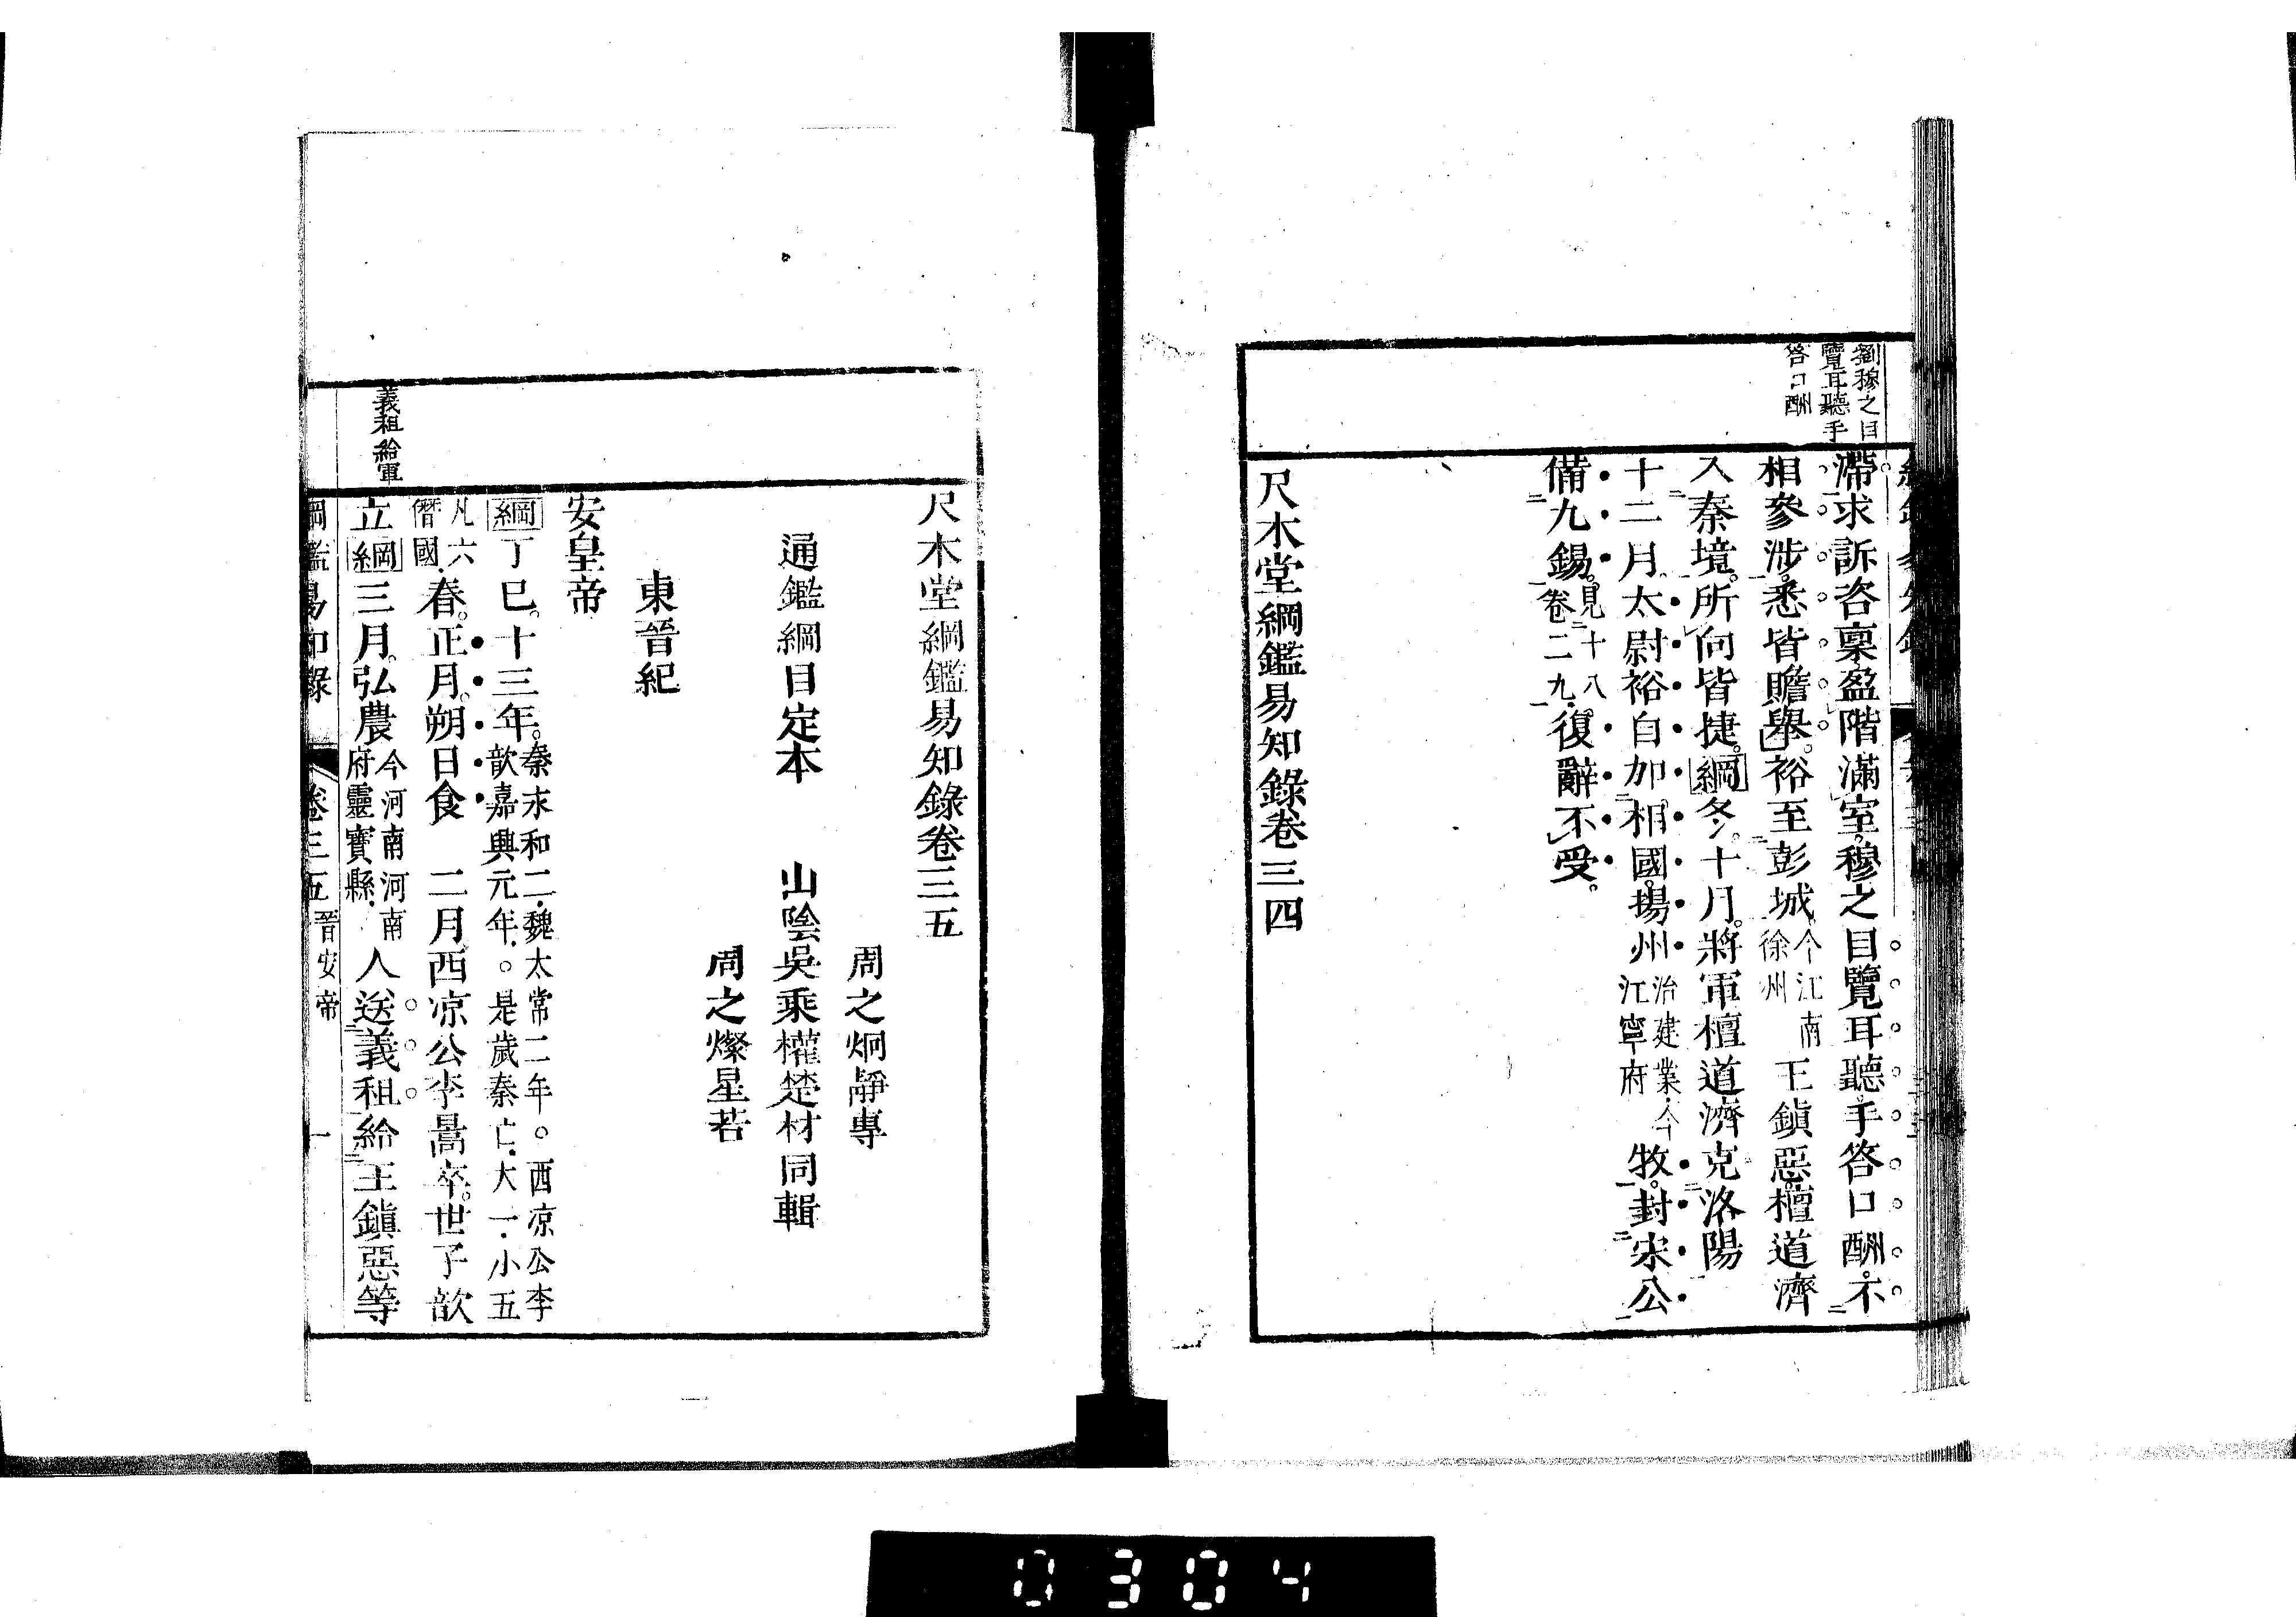 劉穆之目
覽耳聽手
答口酬
滯求訴咨稟盈階滿室穆之目覽耳聽手答口酬不
相參涉悉皆贍舉裕至彭城今江南徐州王鎮惡檀道濟
入秦境所向皆捷綱冬十月將軍檀道濟克洛陽
十二月太尉裕自加相國揚州治建業今江寧府牧封宋公
備九錫見十八卷二九復辭不受
尺木堂綱鑑易知錄卷三四
尺木堂綱鑑易知錄卷三五
周之炯靜專
通鑑綱目定本 山陰吳乘權楚材同輯
周之燦星若
東晉紀
安皇帝
綱丁巳十三年秦永和二魏太常二年。西凉公李歆嘉興元年。是歲秦亡大一小五
凡六僭國春正月朔日食 二月西凉公李暠卒世子歆
義租給軍
立綱三月弘農今河南河南府靈寶縣人送義租給王鎮惡等
綱鑑易知錄 卷三五 晉安帝 一
0304